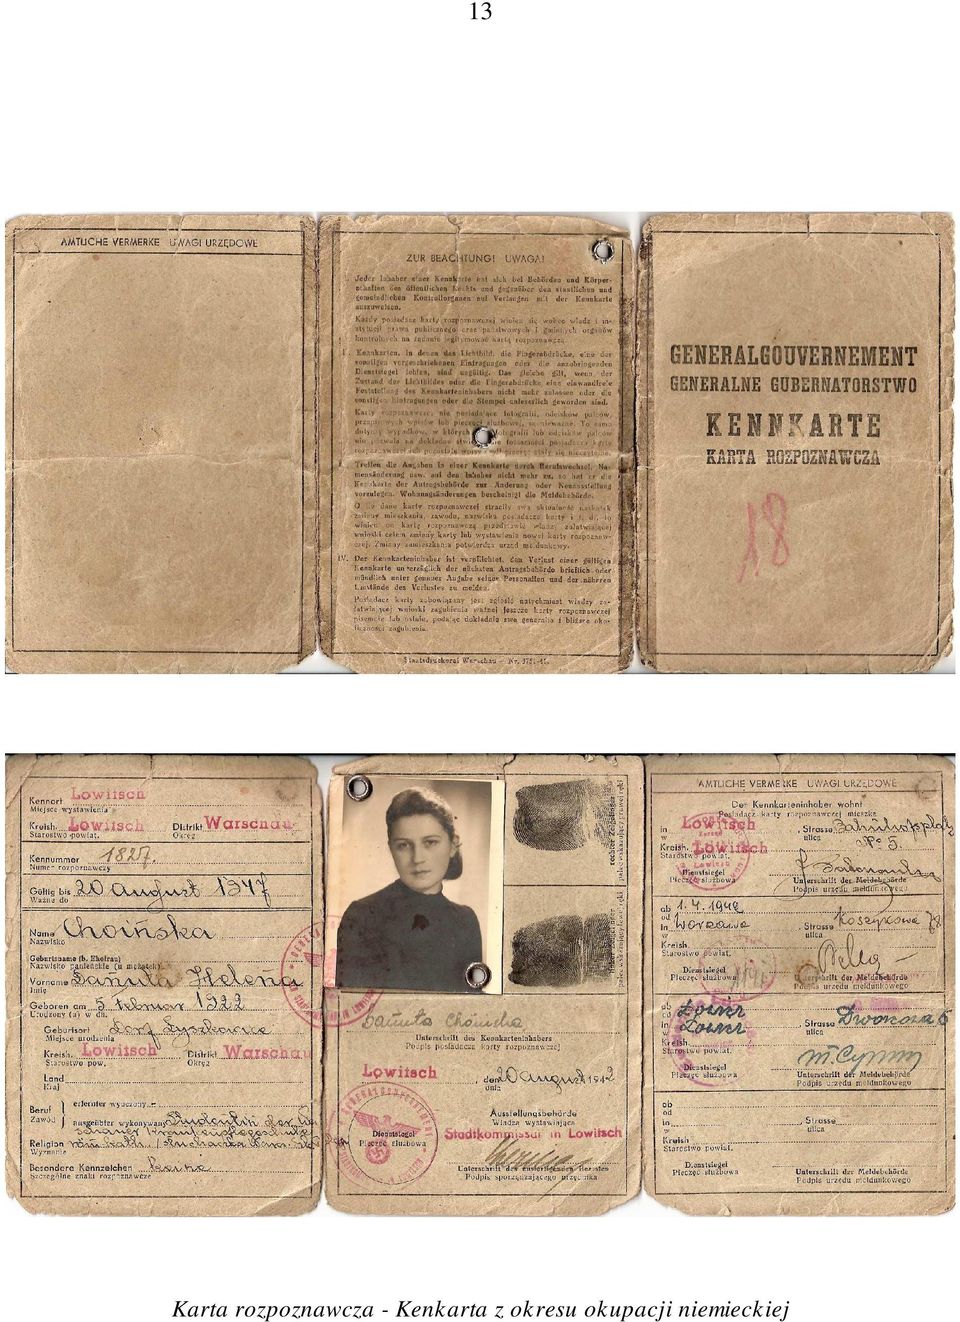 13
AMTLICHE VERMERKE UWAGI URZĘDOWE
ZUR BEACHTUNG! UWAGA!
I. Jeder Inhaber einer Kennkarte hat sich bei Behörden und Körper-
schaften des öffentlichen Rechts und gegenüber den staatlichen und
gemeindlichen Kontrollorganen auf Verlangen mit der Kennkarte
auszuweisen.
Każdy posiadacz karty rozpoznawczej winien się wobec władz i in-
stytucji prawa publicznego oraz państwowych i gminnych organów
kontrolnych na żądanie legitymować kartą rozpoznawczą.
Kennkarten, in denen das Lichtbild, die Fingerabdrücke, eine der
sonstigen vorgeschriebenen Eintragungen oder die anzubringenden
Dienstsiegel fehlen, sind ungültig. Das gleiche gilt, wenn der
Zustand des Lichtbildes oder die Fingerabdrücke eine einwandfreie
Feststellung des Kennkarteninhabers nicht mehr zulassen oder die
sonstigen Eintragungen oder die Stempel unleserlich geworden sind.
Karty rozpoznawcze, nie posiadające fotografii, odcisków palców,
przepisowych wpisów lub pieczęci służbowej, są nieważne. To samo
dotyczy wypadków, w których fotografii lub odcisków palców
nie pozwala na dokładne tożsamości posiadacza karty
Treffen die Angaben in einer Kennkarte durch Berufswechsel, Na-
mensänderung usw. auf den Inhaber nicht mehr zu, so hat er die
Kennkarte der Antragsbehörde zur Änderung oder Neuausstellung
vorzulegen. Wohnungsänderungen bescheinigt die Meldebehörde.
O ile dane karty rozpoznawczej straciły swą aktualność naskutek
zmiany mieszkania, zawodu, nazwiska posiadacza karty i t. d., to
winien on kartę rozpoznawczą przedłożyć władzy załatwiającej
wnioski celem zmiany karty lub wystawienia nowej karty rozpoznaw-
czej. Zmiany zamieszkania potwierdza urząd meldunkowy.
IV. Der Kennkarteninhaber ist verpflichtet, den Verlust einer gültigen
Kennkarte unverzüglich der nächsten Antragsbehörde brieflich oder
mündlich unter genauer Angabe seiner Personalien und der näheren
Umstände des Verlustes zu melden.
Posiadacz karty zobowiązany jest zgłosić natychmiast władzy za-
łatwiającej wnioski zagubienie ważnej jeszcze karty rozpoznawczej
pisemnie lub ustnie, podając dokładnie swe generalia i bliższe oko-
liczności zagubienia.
Staatsdruckerei Warschau – Nr.
GENERALGOUVERNEMENT
GENERALNE GUBERNATORSTWO
KENNKARTE
KARTA ROZPOZNAWCZA
18
Kennort Lowitsch
Miejsce wystawienia
Kreish. Lowitsch Distrikt Warschau
Starostwo powiat. Okręg
Kennummer 1827.
Numer rozpoznawczy
Gültig bis 20 august 1947
Ważne do
Name Choińska
Nazwisko
Geburtsname (b. Ehefrau)
Nazwisko panieńskie (u mężatek)
Vorname Danuta Helena
Imię
Geboren am 5. februar 1922
Urodzony (a) w dn.
Geburtsort Dorf
Miejsce urodzenia
Kreish. Lowitsch Distrikt Warschau
Starostwo pow. Okręg
Land
Kraj
Beruf erlernter wyuczony
Zawód ausgeübter wykonywany
Religion
Wyznanie
Besondere Kennzeichen
Szczególne znaki rozpoznawcze
rechter Zeigefinger
palec wskazujący prawej ręki
linker Zeigefinger
palec wskazujący lewej ręki
Danuta Choińska
Unterschrift des Kennkarteninhabers
Podpis posiadacza karty rozpoznawczej
Lowitsch
den 20 august 1942
dnia
Ausstellungsbehörde
Władza wystawiająca
Dienstsiegel
Pieczęć służbowa
Stadtkommissar in Lowitsch
Unterschrift des ausfertigenden Beamten
Podpis sporządzającego urzędnika
AMTLICHE VERMERKE UWAGI URZĘDOWE
Der Kennkarteninhaber wohnt
Posiadacz karty rozpoznawczej mieszka
in Lowitsch, Strasse
w ulica
Kreish. Lowitsch № 5.
Starostwo powiat.
Dienstsiegel
Pieczęć służbowa
Unterschrift der Meldebehörde
Podpis urzędu meldunkowego
ab 1.4.1942
od
in , Strasse Koszykowa 78
w ulica
Kreish.
Starostwo powiat.
Dienstsiegel Unterschrift der Meldebehörde
Pieczęć służbowa Podpis urzędu meldunkowego
ab
od
in Łowicz, Strasse Dworcowa 6
w ulica
Kreish.
Starostwo powiat.
Dienstsiegel Unterschrift der Meldebehörde
Pieczęć służbowa Podpis urzędu meldunkowego
ab
od
in Strasse
w ulica
Kreish
Starostwo powiat.
Dienstsiegel Unterschrift der Meldebehörde
Pieczęć służbowa Podpis urzędu meldunkowego
Karta rozpoznawcza - Kenkarta z okresu okupacji niemieckiej